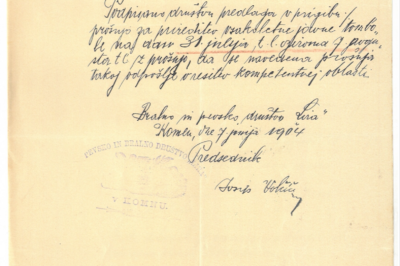 Podpisano društvo predlaga v prigibu
prošnjo za prireditev vsakoletne javne tombo-
le na dan 31 julija t. l. oziroma 7 avgu-
sta t. l. z prošnjo, da se navedena prošnja
takoj odpošlje v rešitev kompetentnej oblasti.
Bralno in pevsko društvo "Lira"
Komen, dne 7 junija 1904
Predsednik
Josip
PEVSKO IN BRALNO DRUŠTVO
V KOMNU.